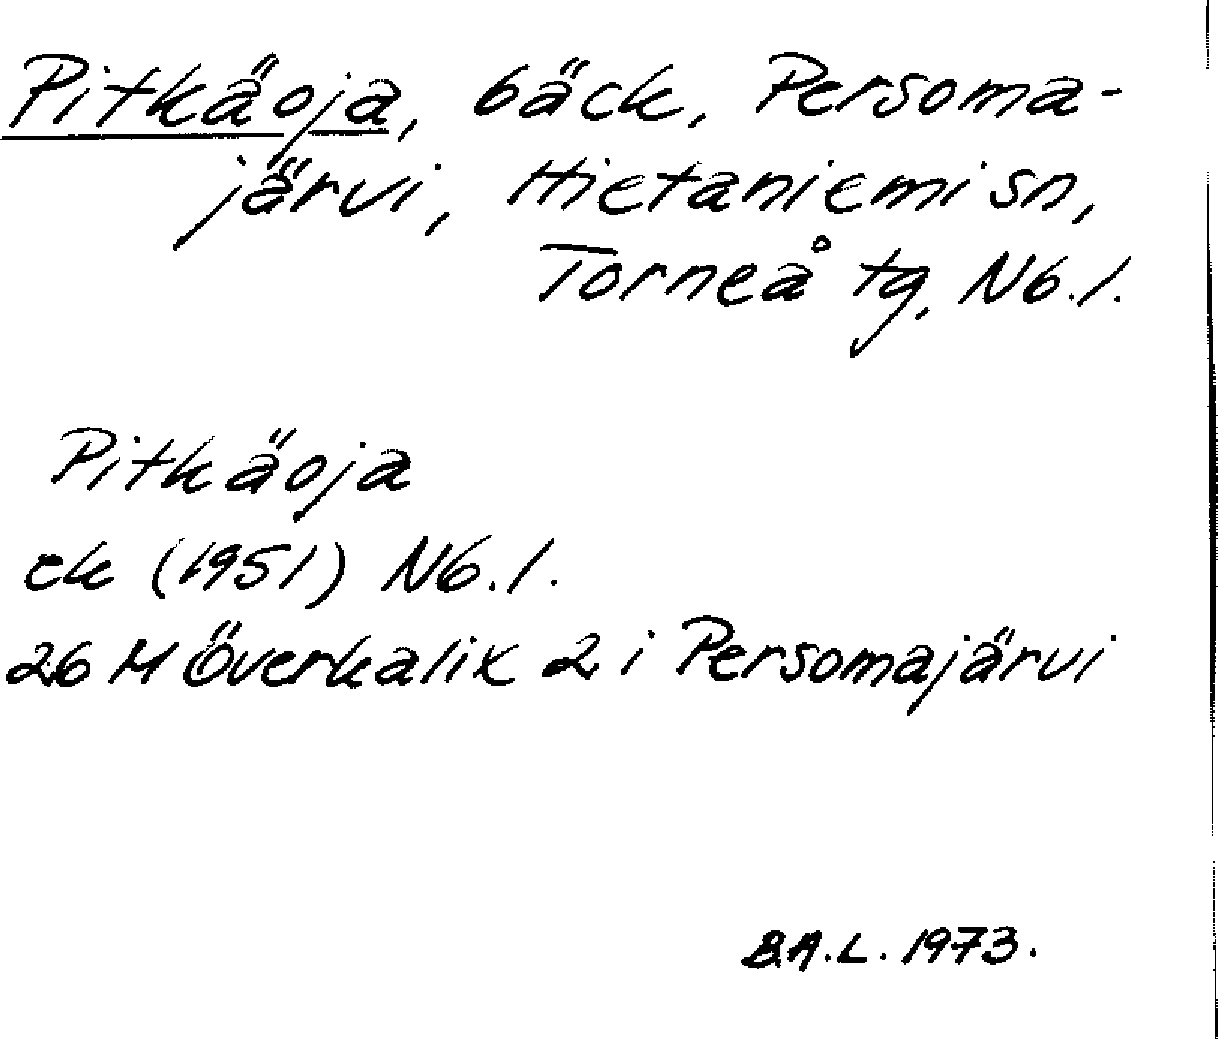 Pitkäoja, bäck, Persoma-
järvi, Hietaniemi sn,
Torneå tg, N6.1.
Pitkäoja
ek (1951) N6.1.
26 M Överkalix 2 i Persomajärvi
B.A.L. 1973.